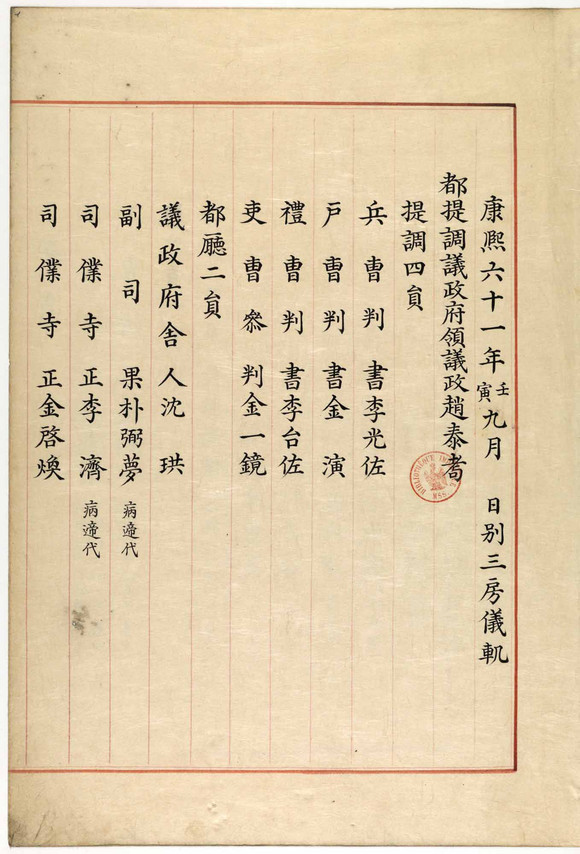 康熈六十一年壬寅九月　日别三房儀軌
都提調議政府領議政趙泰耉
提調四員
兵曹判書李光佐
户曹判書金演
禮曹判書李台佐
吏曹叅判金一鏡
都廳二員
議政府舎人沈珙
副司果朴弼夢病遆代
司僕寺正李濟病遆代
司僕寺正金啓煥